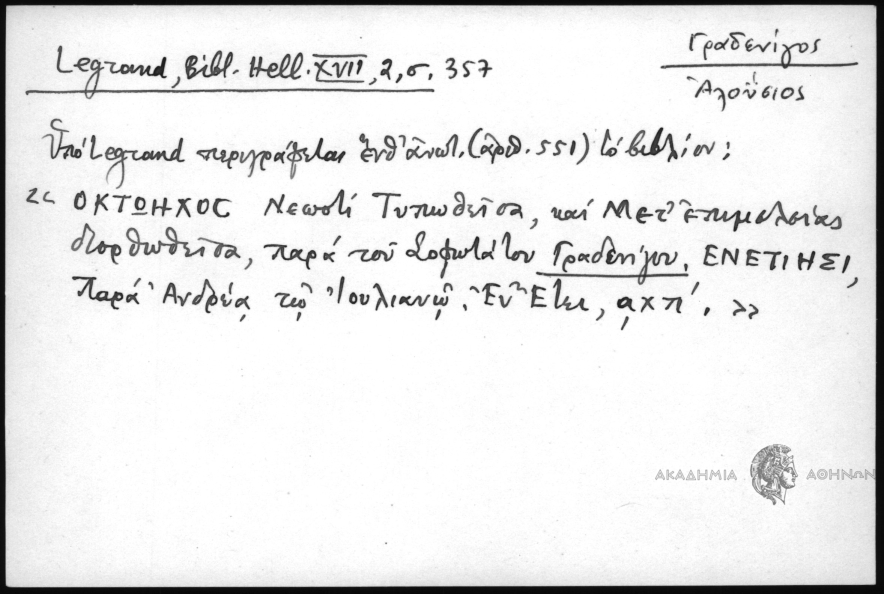 Γραδενίγος
Ἀλοΰσιος
Legrand, Bibl. Hell. XVII, 2, σ. 357
Ὑπό Legrand περιγράφεται ἐνθ' ἀνωτ. (ἀριθ. 551) τό βιβλίον:
«ΟΚΤΩΗΧΟC Νεωστί Τυπωθεῖσα, καί Μετ' ἐπιμελείας
διορθωθεῖσα, παρά τοῦ Σοφωτάτου Γραδενίγου. ΕΝΕΤΙΗΣΙ,
Παρά Ἀνδρέᾳ τῷ Ἰουλιανῷ. Ἐν Ἔτει, ͵αχπ´. »
ΑΚΑΔΗΜΙΑ ΑΘΗΝΩΝ